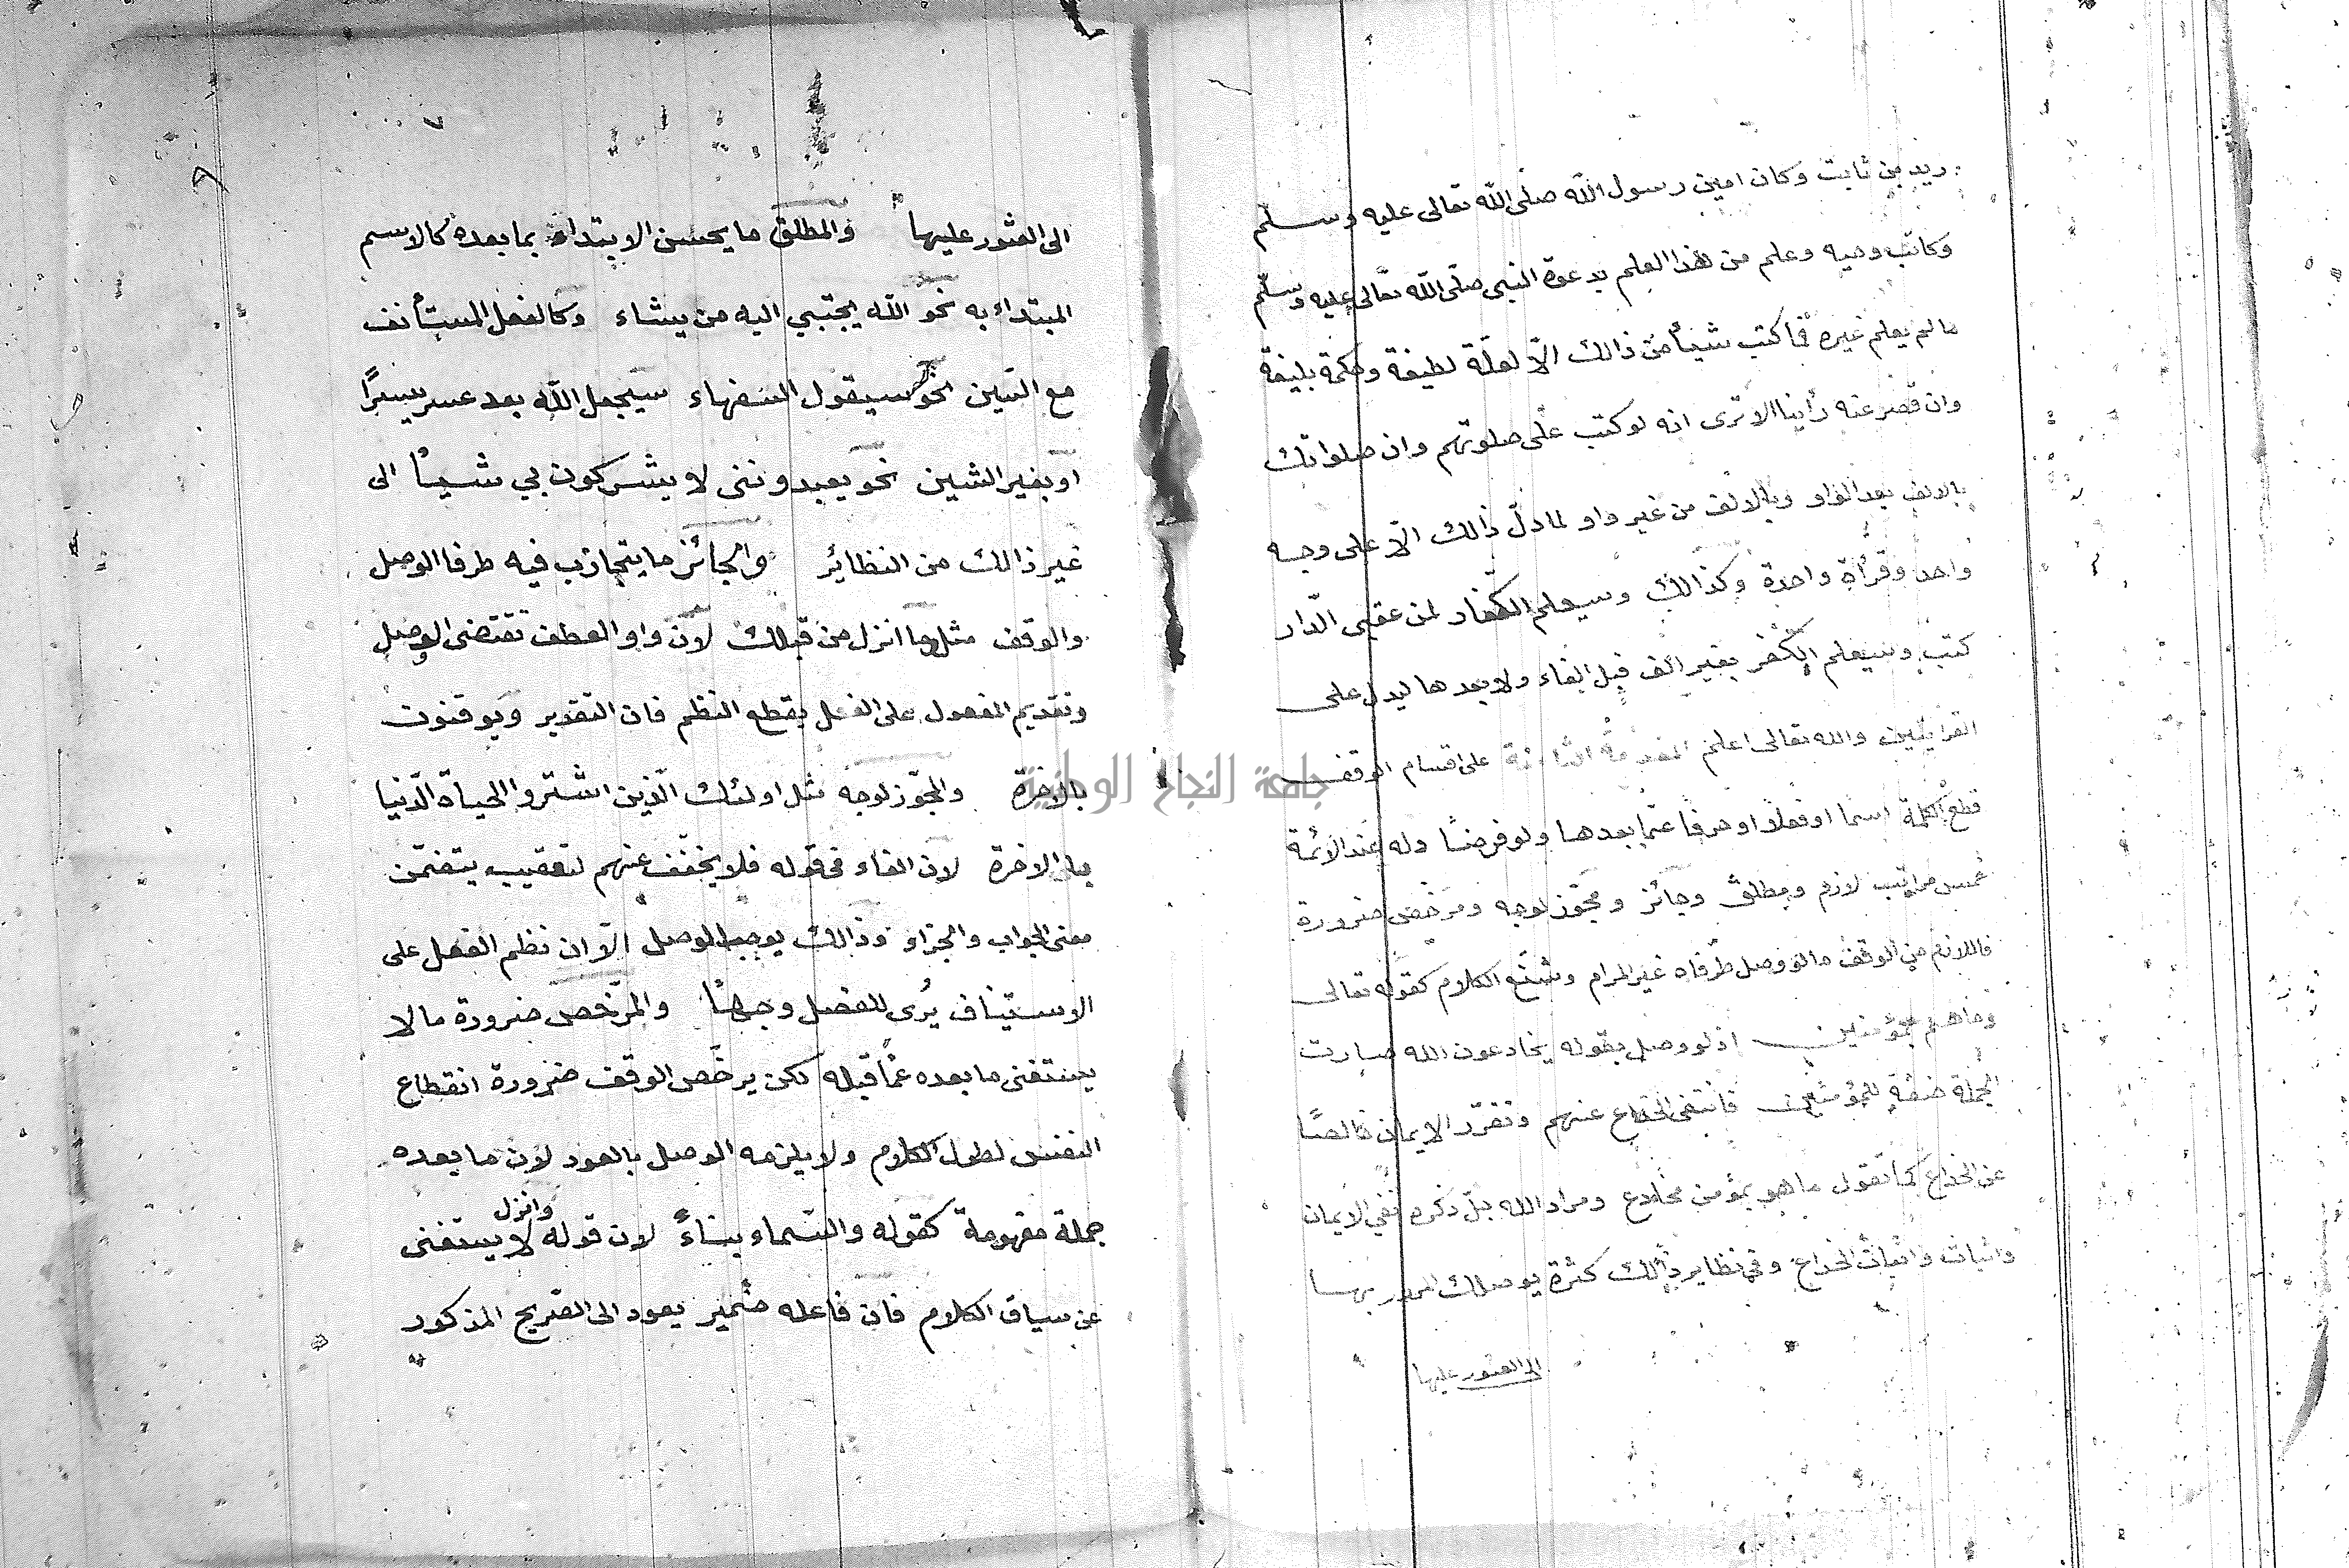 زيد بن ثابت وكان امين رسول الله صلّى الله تعالى عليه وسلم
وكاتب وحيه وعلم من هذا العلم بدعوة النبي صلّى الله تعالى عليه وسلّم
ما لم يعلم غيره فما كتب شيأ من ذالك الّا لعلّة لطيفة وحكمة بليغة
وان قصر عنه رأينا الا ترى انه لو كتب على صلوتهم وان صلواتك
بالالف بعد الواو وبالالف من غير واو لما دلّ ذالك الّا على وجه
واحد وقرأة واحدة وكذالك وسيعلم الكفّار لمن عقبى الدّار
كتب وسيعلم الكفر بغير الف قبل الفاء ولا بعدها ليدل على
القرايتين والله تعالى اعلم المقدمة على اقسام الوقف
قطع الكلمة اسما او فعلا او حرفا عمّا بعدها ولو فرضا وله عند الائمة
خمس مراتب لازم ومطلق وجائز ومجوّز لوجه ومرخّص ضرورة
فاللازم من الوقف ما لو وصل طرفاه غير المرام وشنّع الكلام كقوله تعالى
وما هم بمؤمنين اذ لو وصل بقوله يخادعون الله صارت
الجملة صفة للمؤمنين فانتفى الخداع عنهم وتقرّر الايمان خالصًا
عن الخداع كما تقول ما هو بمؤمن مخادع ومراد الله جلّ ذكره نفي الايمان
واثبات واثبات الخداع وفي نظاير ذالك كثرة يوصلك المرور بها
الى العثور عليها
٧
الى العثور عليها والمطلق ما يحسن الابتداء بما بعده كالاسم
المبتداء به نحو الله يجتبي اليه من يشاء وكالفعل المستأنف
مع السّين نحو سيقول السفهاء سيجعل الله بعد عسر يسرًا
او بغير الشين نحو يعبدونني لا يشركون بي شيئًا الى
غير ذالك من النظائير والجائز ما يتجاذب فيه طرفا الوصل
والوقف مثل وما انزل من قبلك لان واو العطف تقتضى الوصل
وتقديم المفعول على الفعل يقطع النظم فان التقدير ويوقنون
بالاخرة والمجوّز لوجه مثل اولئك الّذين اشتروا الحياة الدّنيا
بالاخرة لان الفاء فى قوله فلا يخفّف عنهم لتعقيب يتضمّن
معنى الجواب والجزاء وذالك يوجب الوصل الّا ان نظم الفعل على
الاستيناف يُرى للفصل وجهًا والمرّخص ضرورة ما لا
يستغنى ما بعده عمّا قبله لكن يرخّص الوقف ضرورة انقطاع
النفس لطول الكلام ولا يلزمه الوصل بالعود لان ما بعده
جملة مفهومة كقوله والسّماء بناءً لان قوله وانزل لا يستغنى
عن سياق الكلام فان فاعله ضمير يعود الى الصّريح المذكور
جامعة النجاح الوطنية